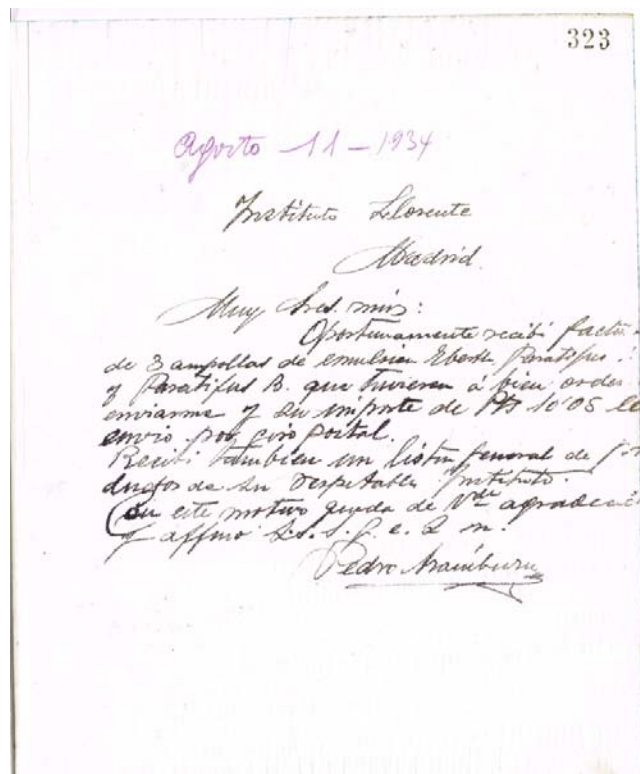 323
Agosto 11-1934
Instituto Llorente
Madrid.
Muy Sres. mios:
Oportunamente recibi factu
de 3 ampollas de emulsion Eberth Paratifus
y Paratifus B. que tuvieron á bien orde
enviarme y su importe de Pts 10'05 le
envio por giro postal.
Recibi tambien un listin general de pro
ductos de su respetable Instituto.
Con este motivo queda de Vdes agradeci
y affmo S.S. q. e. s. m.
Pedro Aramburu